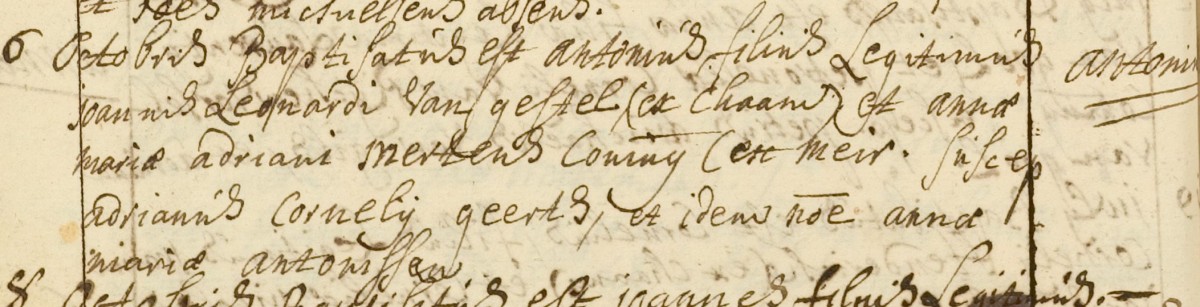 et idem michielsens absens.
6 Octobris Baptisatus est antonius filius Legitimus antoni
joannis Leonardi Van gestel (ex Chaam) et annæ
mariæ adriani Mertens Coniug (ex Meir. suscep
adrianus Cornelij geerts, et idem nõe annæ
mariæ antonissen
8 Octobris Baptisatus est joannes filius Legitimus